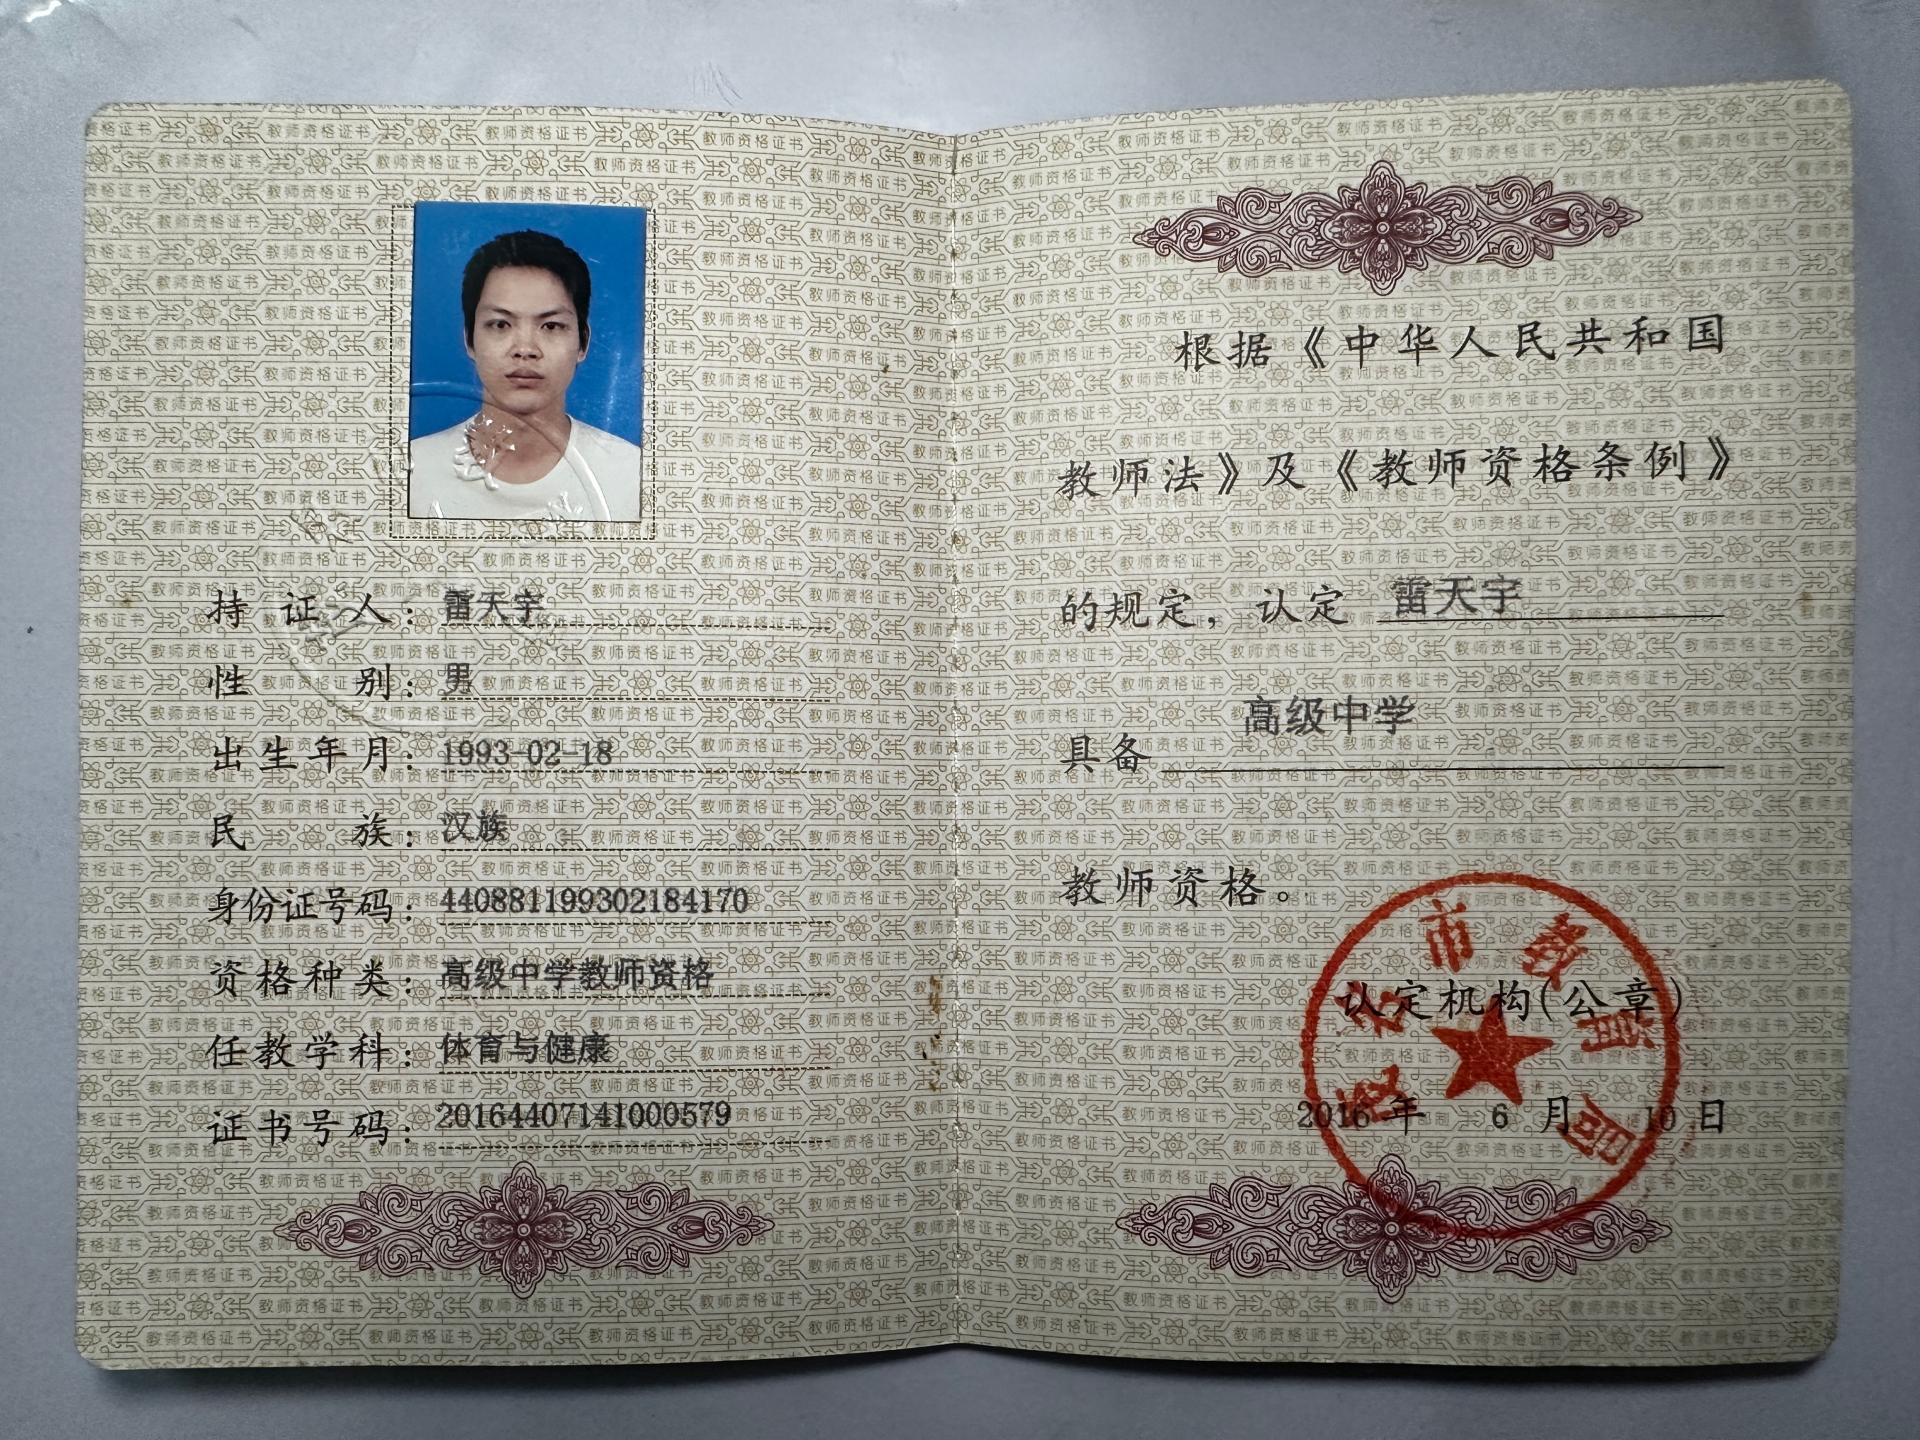 持证人：雷天宇
性别：男
出生年月：1993-02-18
民族：汉族
身份证号码：440881199302184170
资格种类：高级中学教师资格
任教学科：体育与健康
证书号码：20164407141000579
根据《中华人民共和国
教师法》及《教师资格条例》
的规定，认定 雷天宇
具备 高级中学
教师资格。
认定机构(公章)
市教育局
2016年 6月 10日